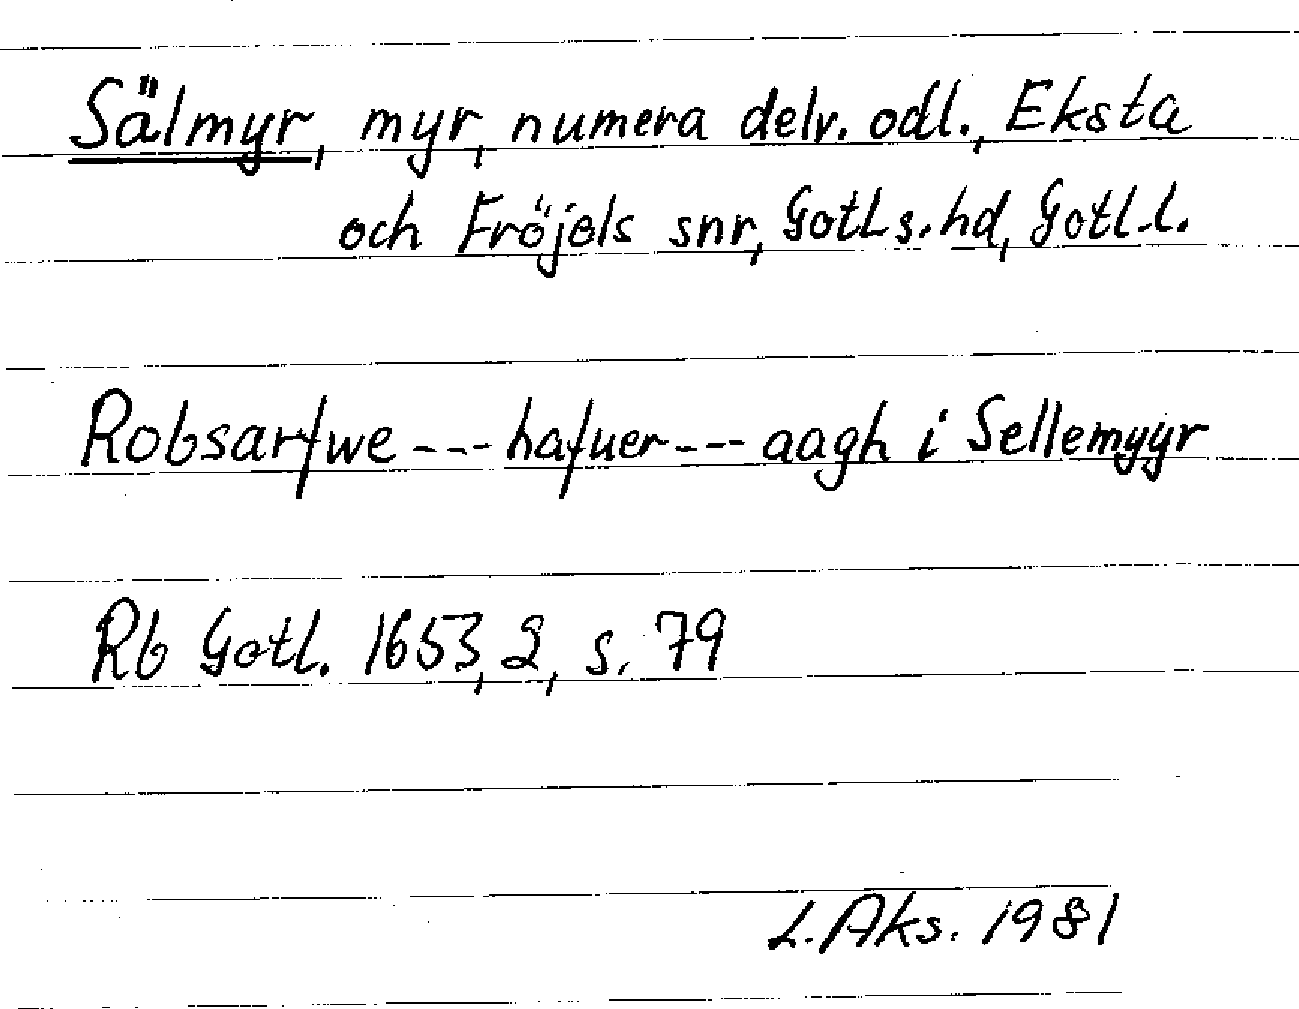 Sälmyr, myr, numera delv. odl., Eksta
och Fröjels snr, Gotl s. hd, Gotl. l.
Robsarfwe --- hafuer --- aagh i Sellemyyr
Rb Gotl. 1653, 2, s. 79
L. Aks. 1981